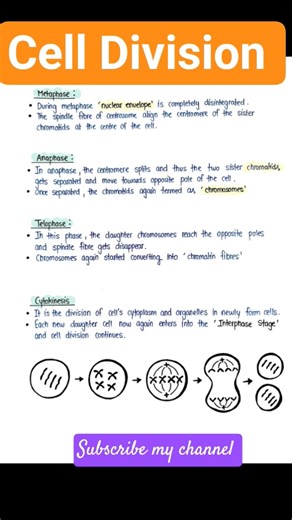 Cell Division
Metaphase :
• During metaphase 'nuclear envelope' is completely disintegrated.
• The spindle fibre of centrosome align the centromere of the sister
chromatids at the centre of the cell.
Anaphase :
• In anaphase, the centromere splits and thus the two sister chromatids,
gets separated and move towards opposite pole of the cell.
• Once separated, the chromatids again termed as, 'chromosomes'
Telophase :
• In this phase, the daughter chromosomes reach the opposite poles
and spindle fibre gets disappear.
• Chromosomes again started converting into 'chromatin fibres'
Cytokinesis
• It is the division of cell's cytoplasm and organelles in newly form cells.
• Each new daughter cell now again enters into the 'Interphase Stage'
and cell division continues.
Subscribe my channel